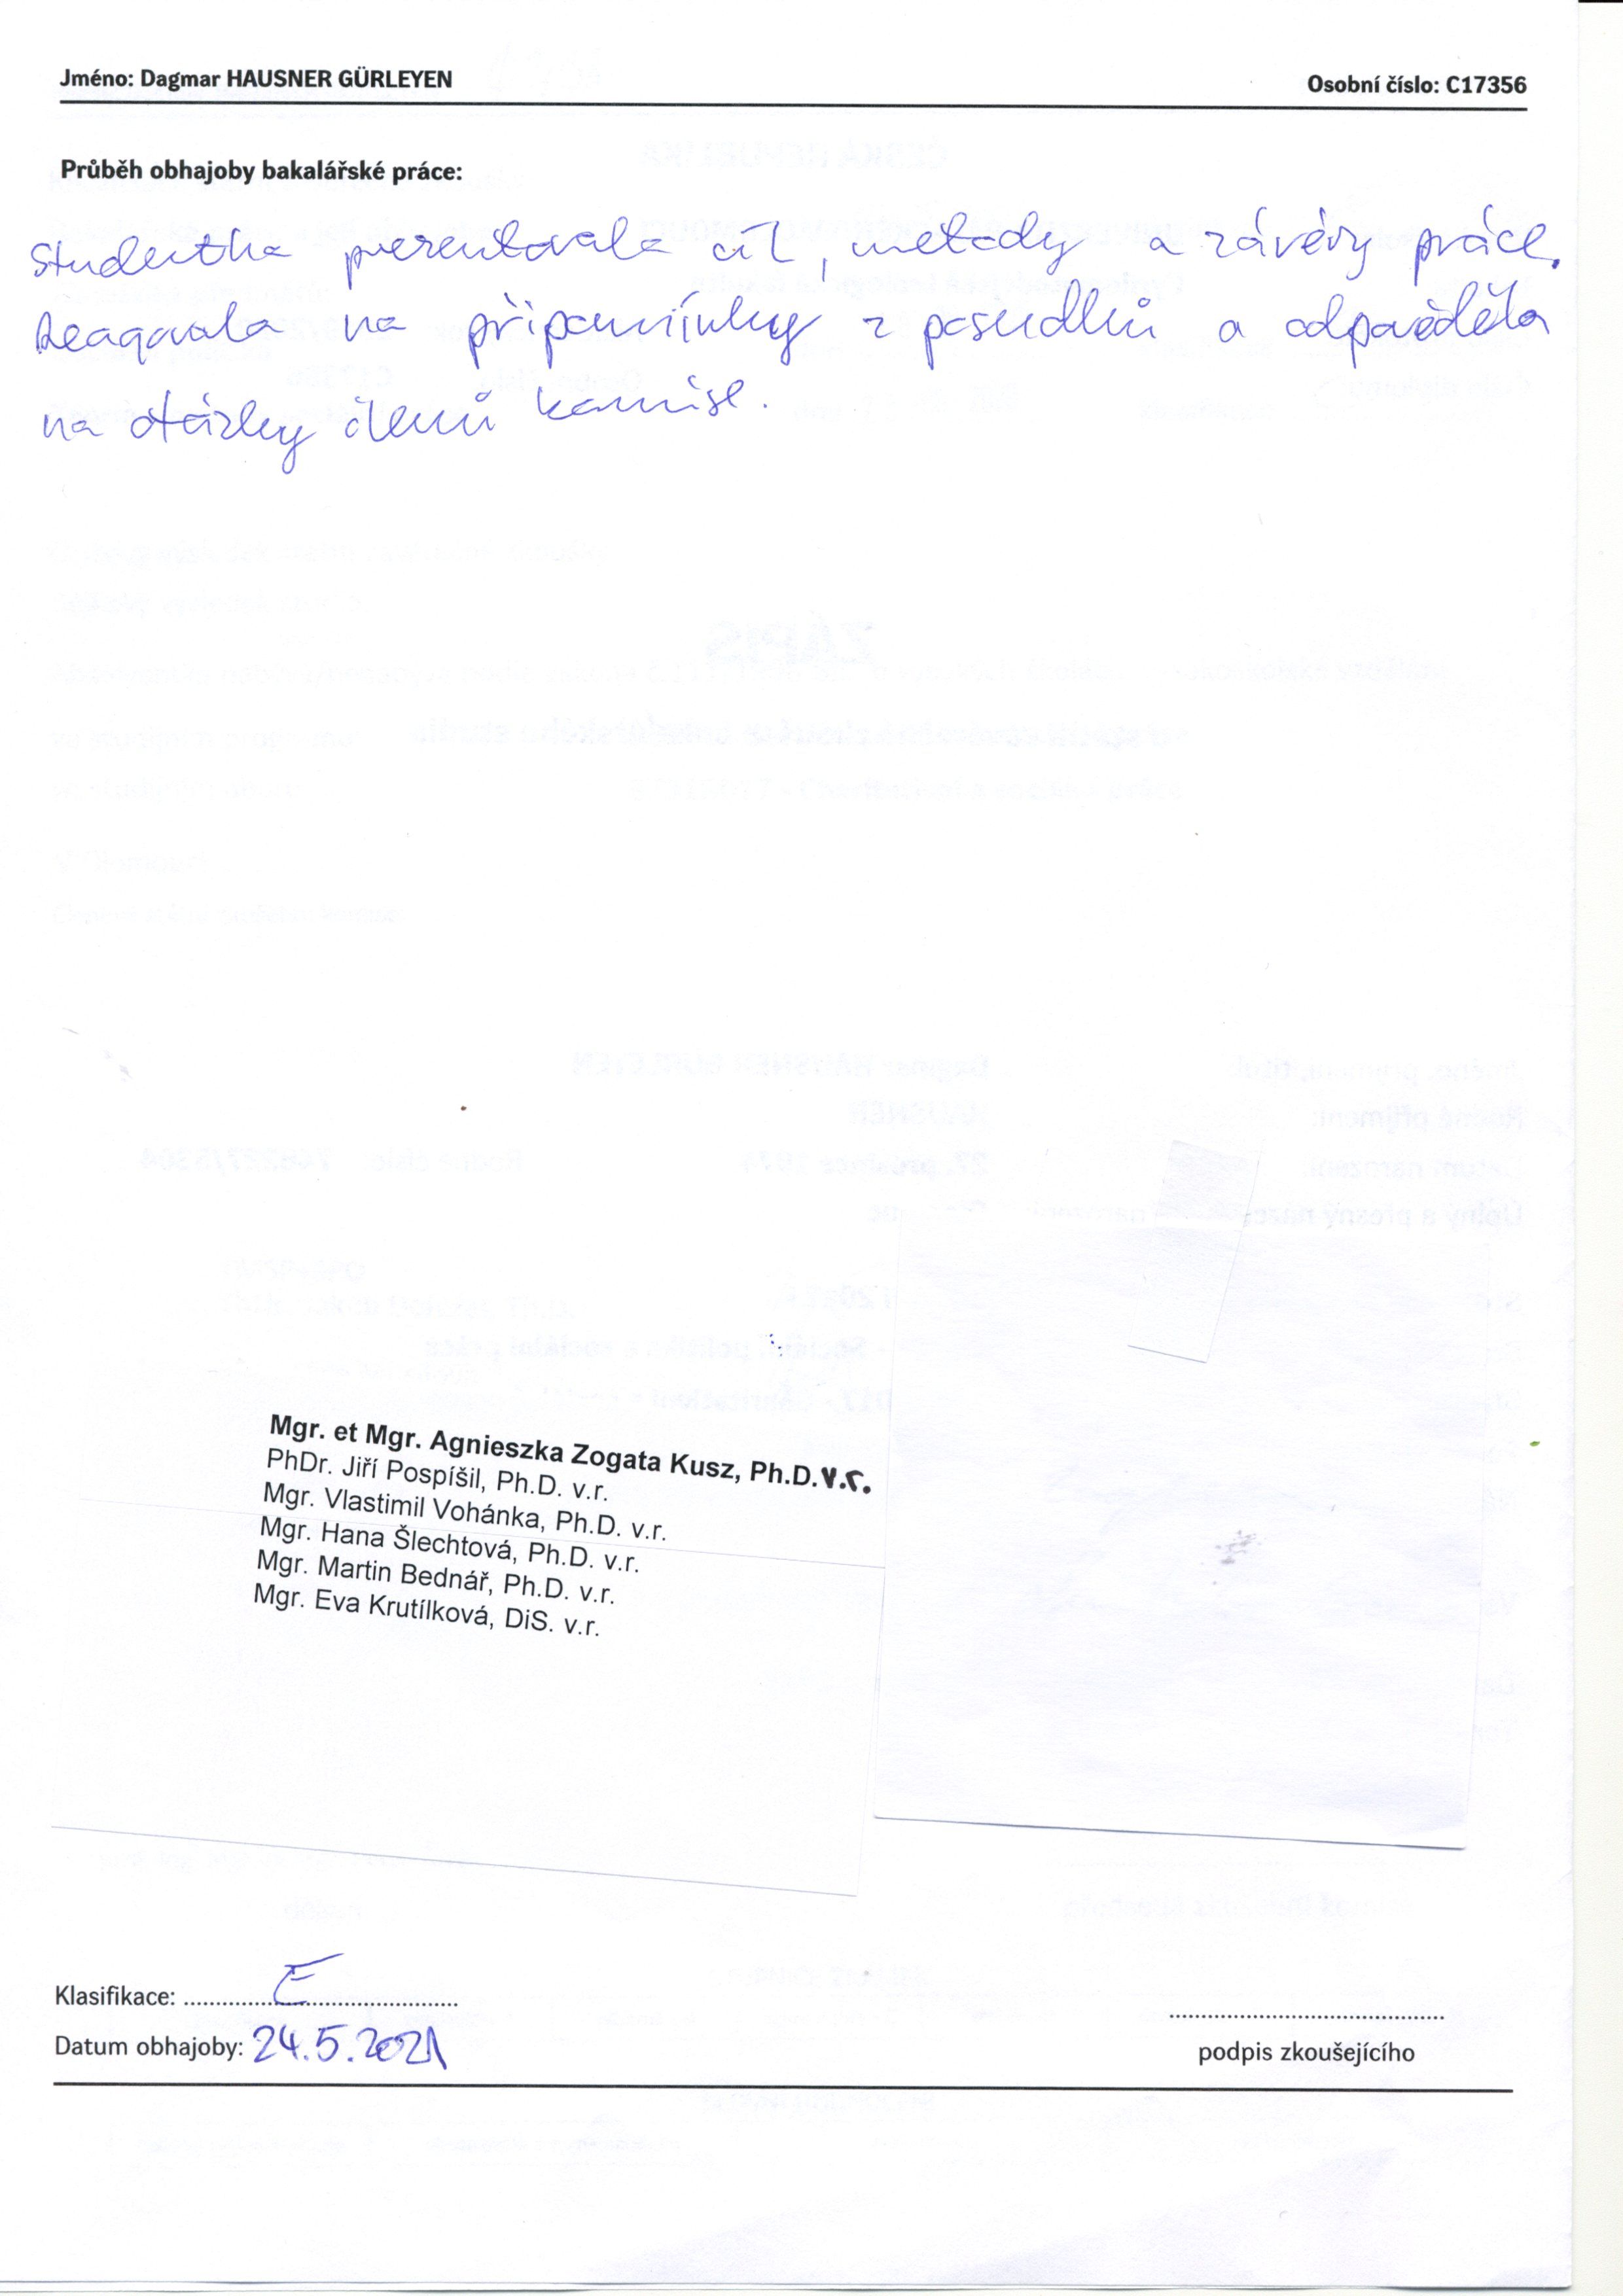 Jméno: Dagmar HAUSNER GÜRLEYEN Osobní číslo: C17356
Průběh obhajoby bakalářské práce:
Studentka prezentovala cíl, metody a závěry práce.
Reagovala na připomínky z posudků a odpověděla
na otázky členů komise.
Mgr. et Mgr. Agnieszka Zogata Kusz, Ph.D. v.r.
PhDr. Jiří Pospíšil, Ph.D. v.r.
Mgr. Vlastimil Vohánka, Ph.D. v.r.
Mgr. Hana Šlechtová, Ph.D. v.r.
Mgr. Martin Bednář, Ph.D. v.r.
Mgr. Eva Krutílková, DiS. v.r.
Klasifikace: E
Datum obhajoby: 24.5.2021
podpis zkoušejícího